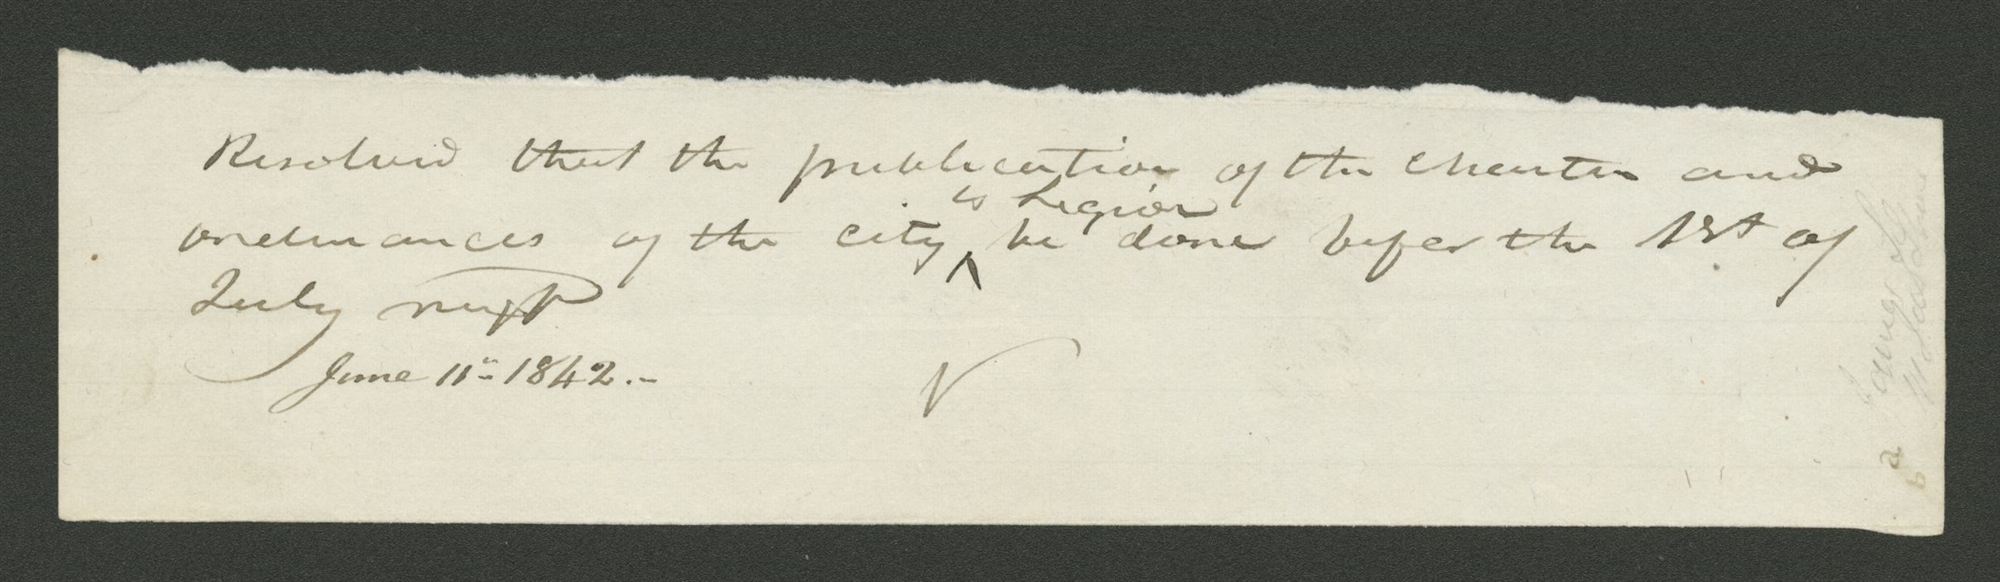 Resolved that the publication of the Charter and
ordinances of the city ^ & Legion be done befor the 1st of
July next
June 11" 1842.—